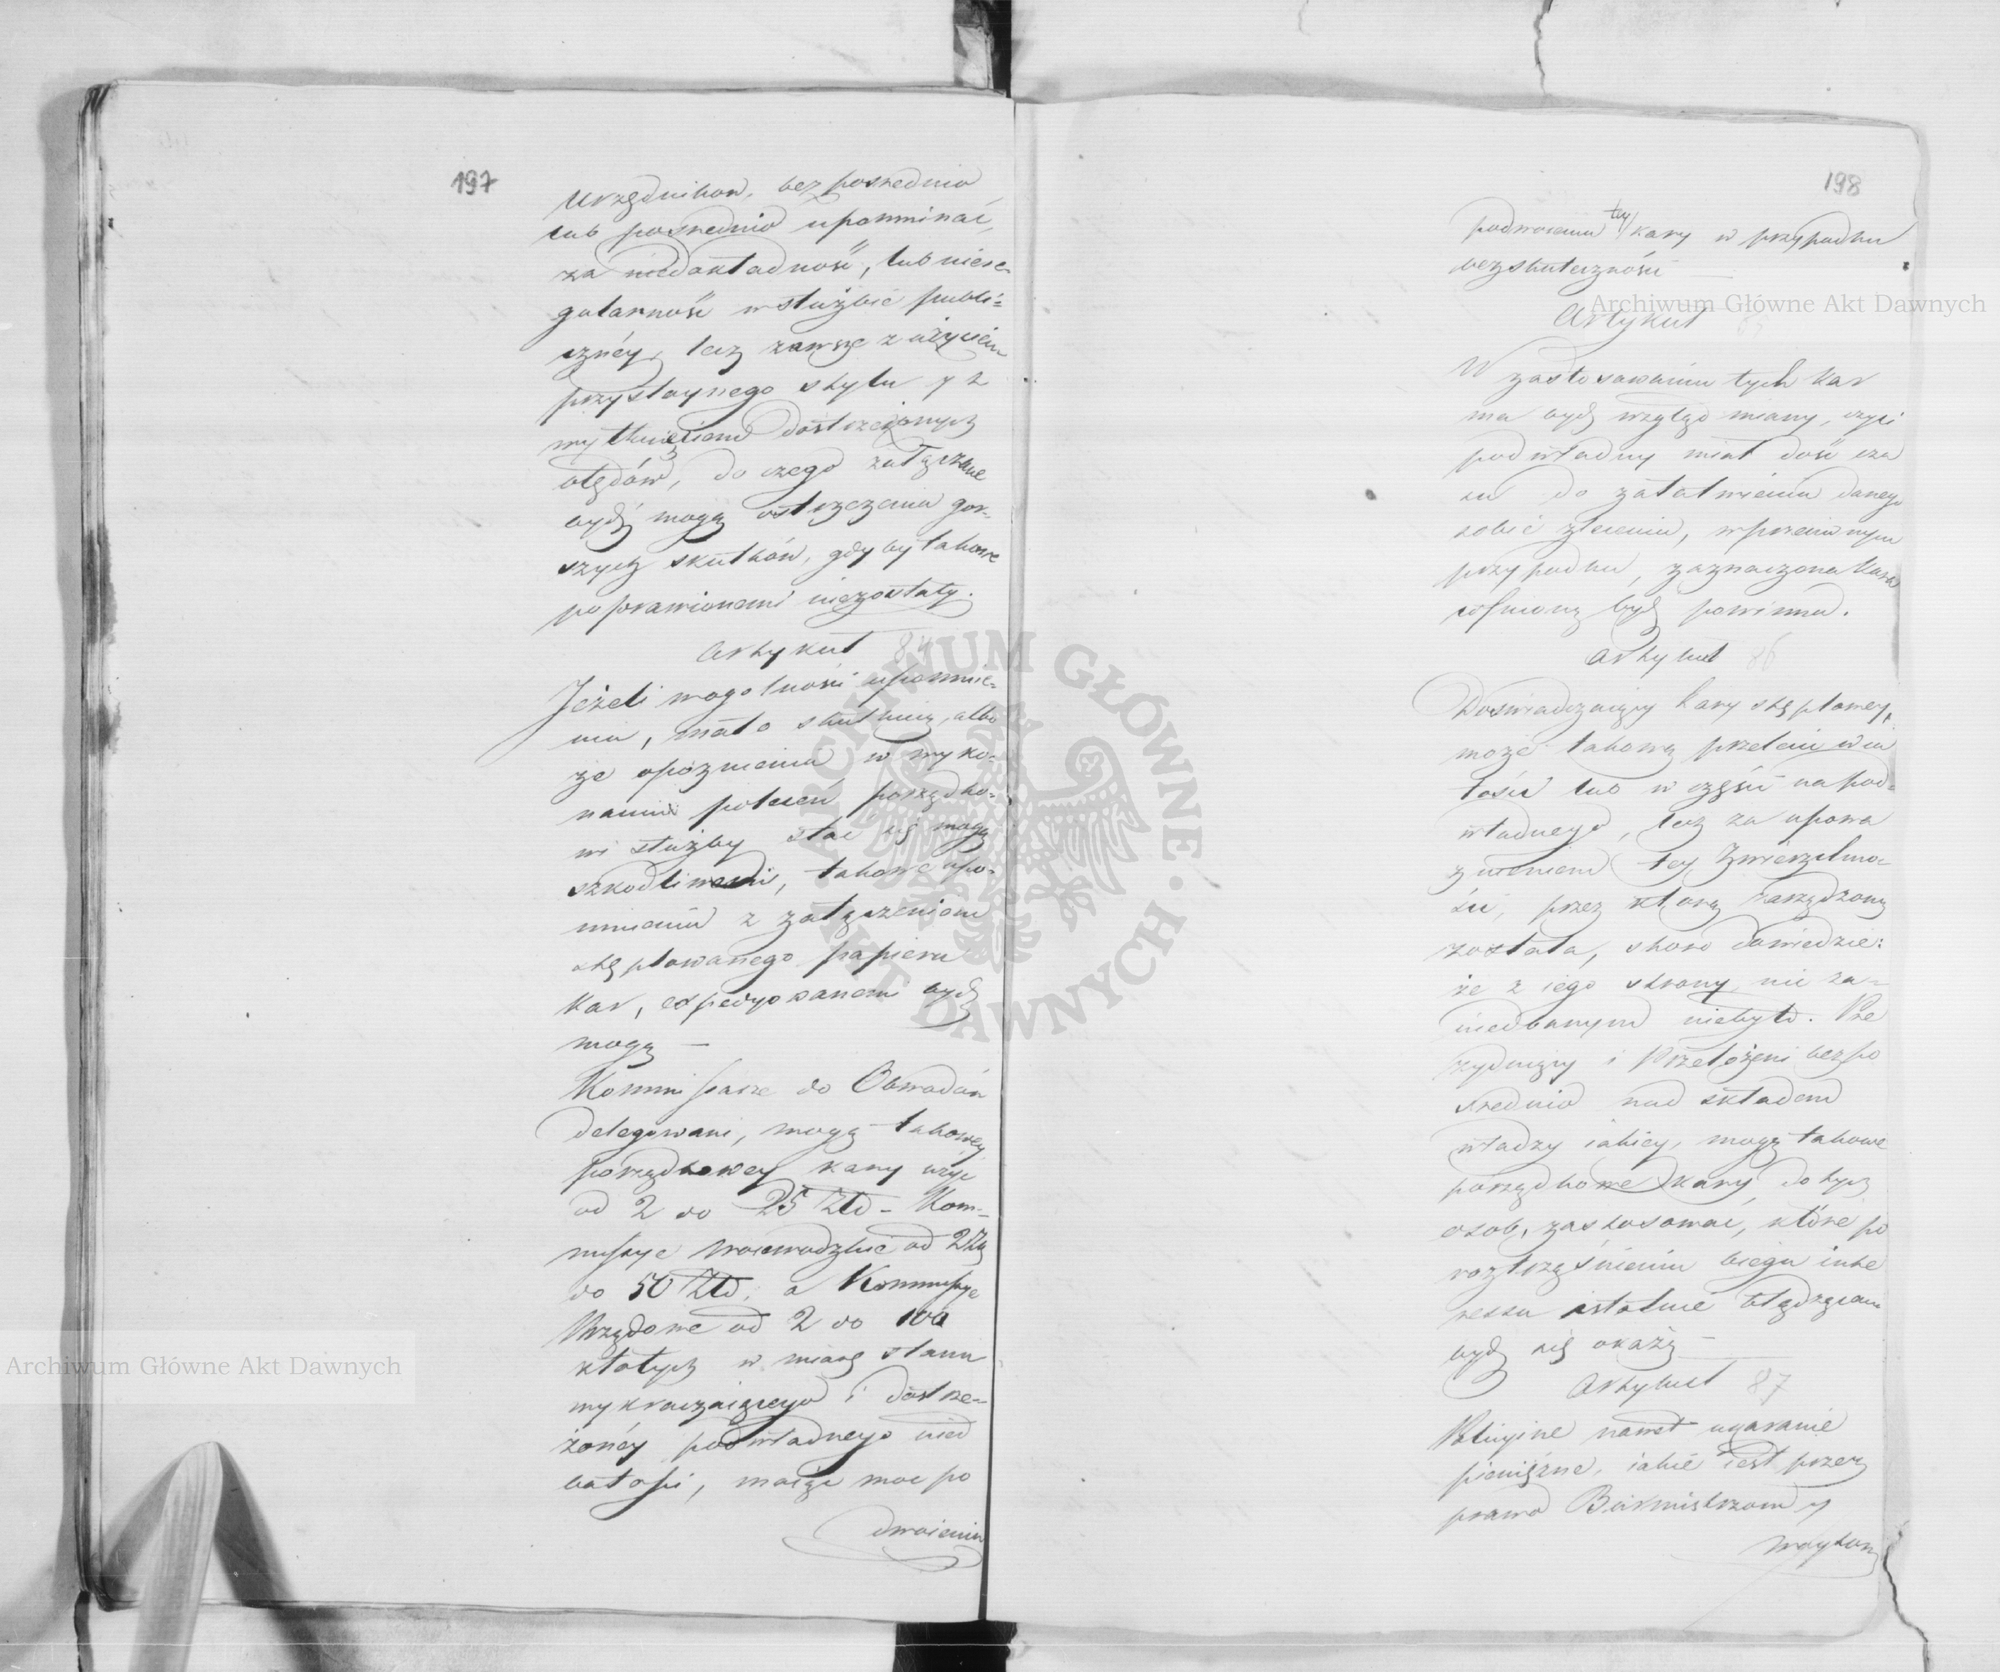 197
Urzędnikow, bezposrednio
lub posrednio upominać,
za niedokładność, lub niere-
gularność w służbie publi-
cznéy, lecz zawsze z użyciem
przystoynego stylu y z
wytknięciem dostrzeżonych
błędów, do czego załączone
bydź mogą ostrzeżenia gor-
szych skutków, gdyby takowe
poprawionemi niezostały.
Artykuł 84
Jeżeli w ogolności upomnie-
nia, mało skutkuią, albo
że opóznienia w wyko-
naniu poleceń porządko-
wi służby stać się mogą
szkodliwemi, takowe upo-
mnienia z załączeniem
stęplowanego papieru
kar, expedyowanemi bydź
mogą —
Kommissarze do Obwodów
delegowani, mogą takowey
porządkowey kary użyć
od 2 do 25 Złł – Kom-
missye Woiewodzkie od 2 Złł
do 50 Złł; a Kommissye
Rządowe od 2 do 100
złotych w miarę stanu
wykraczaiącego i dostrze-
żonéy podwładnego nied
bałości, maiąc moc po
dwoienia
198
podwoienia tey kary w przypadku
bezskuteczności
Artykuł 85
W zastosowaniu tych kar
ma bydź wzgląd miany, czyli
podwładny miał dość cza
su do załatwienia danego
sobie zlecenia, w przeciwnym
przypadku, zaznaczona kara
cofniona bydź powinna.
Artykuł 86
Doświadczaiący kary stęplowey,
może takową przelać w ca
łości lub w części na pod-
władnego, lecz za upowa
żnieniem tey Zwierzchno-
ści, przez którą zarządzoną
została, skoro dowiedzie:
że z iego strony nic za-
niedbanym niebyło. Pre
zyduiący i Przełożeni bezpo
srednio nad składem
władzy iakiey, mogą takowe
porządkowe kary, do tych
osob, zastosować, które po
roztrząśnieniu biegu inte
ressu istotnie błądzącemi
bydź się okażą —
Artykuł 87
Policyine nawet ukaranie
pieniężne, iakie iest przez
prawo Burmistrzom y
Woytom
Archiwum Główne Akt Dawnych
Archiwum Główne Akt Dawnych
ARCHIWUM GŁÓWNE AKT DAWNYCH